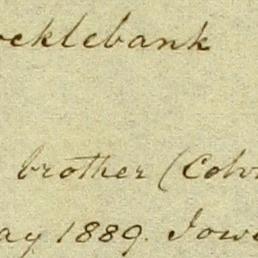 ocklebank
brother (Colv
ay 1889. Iow